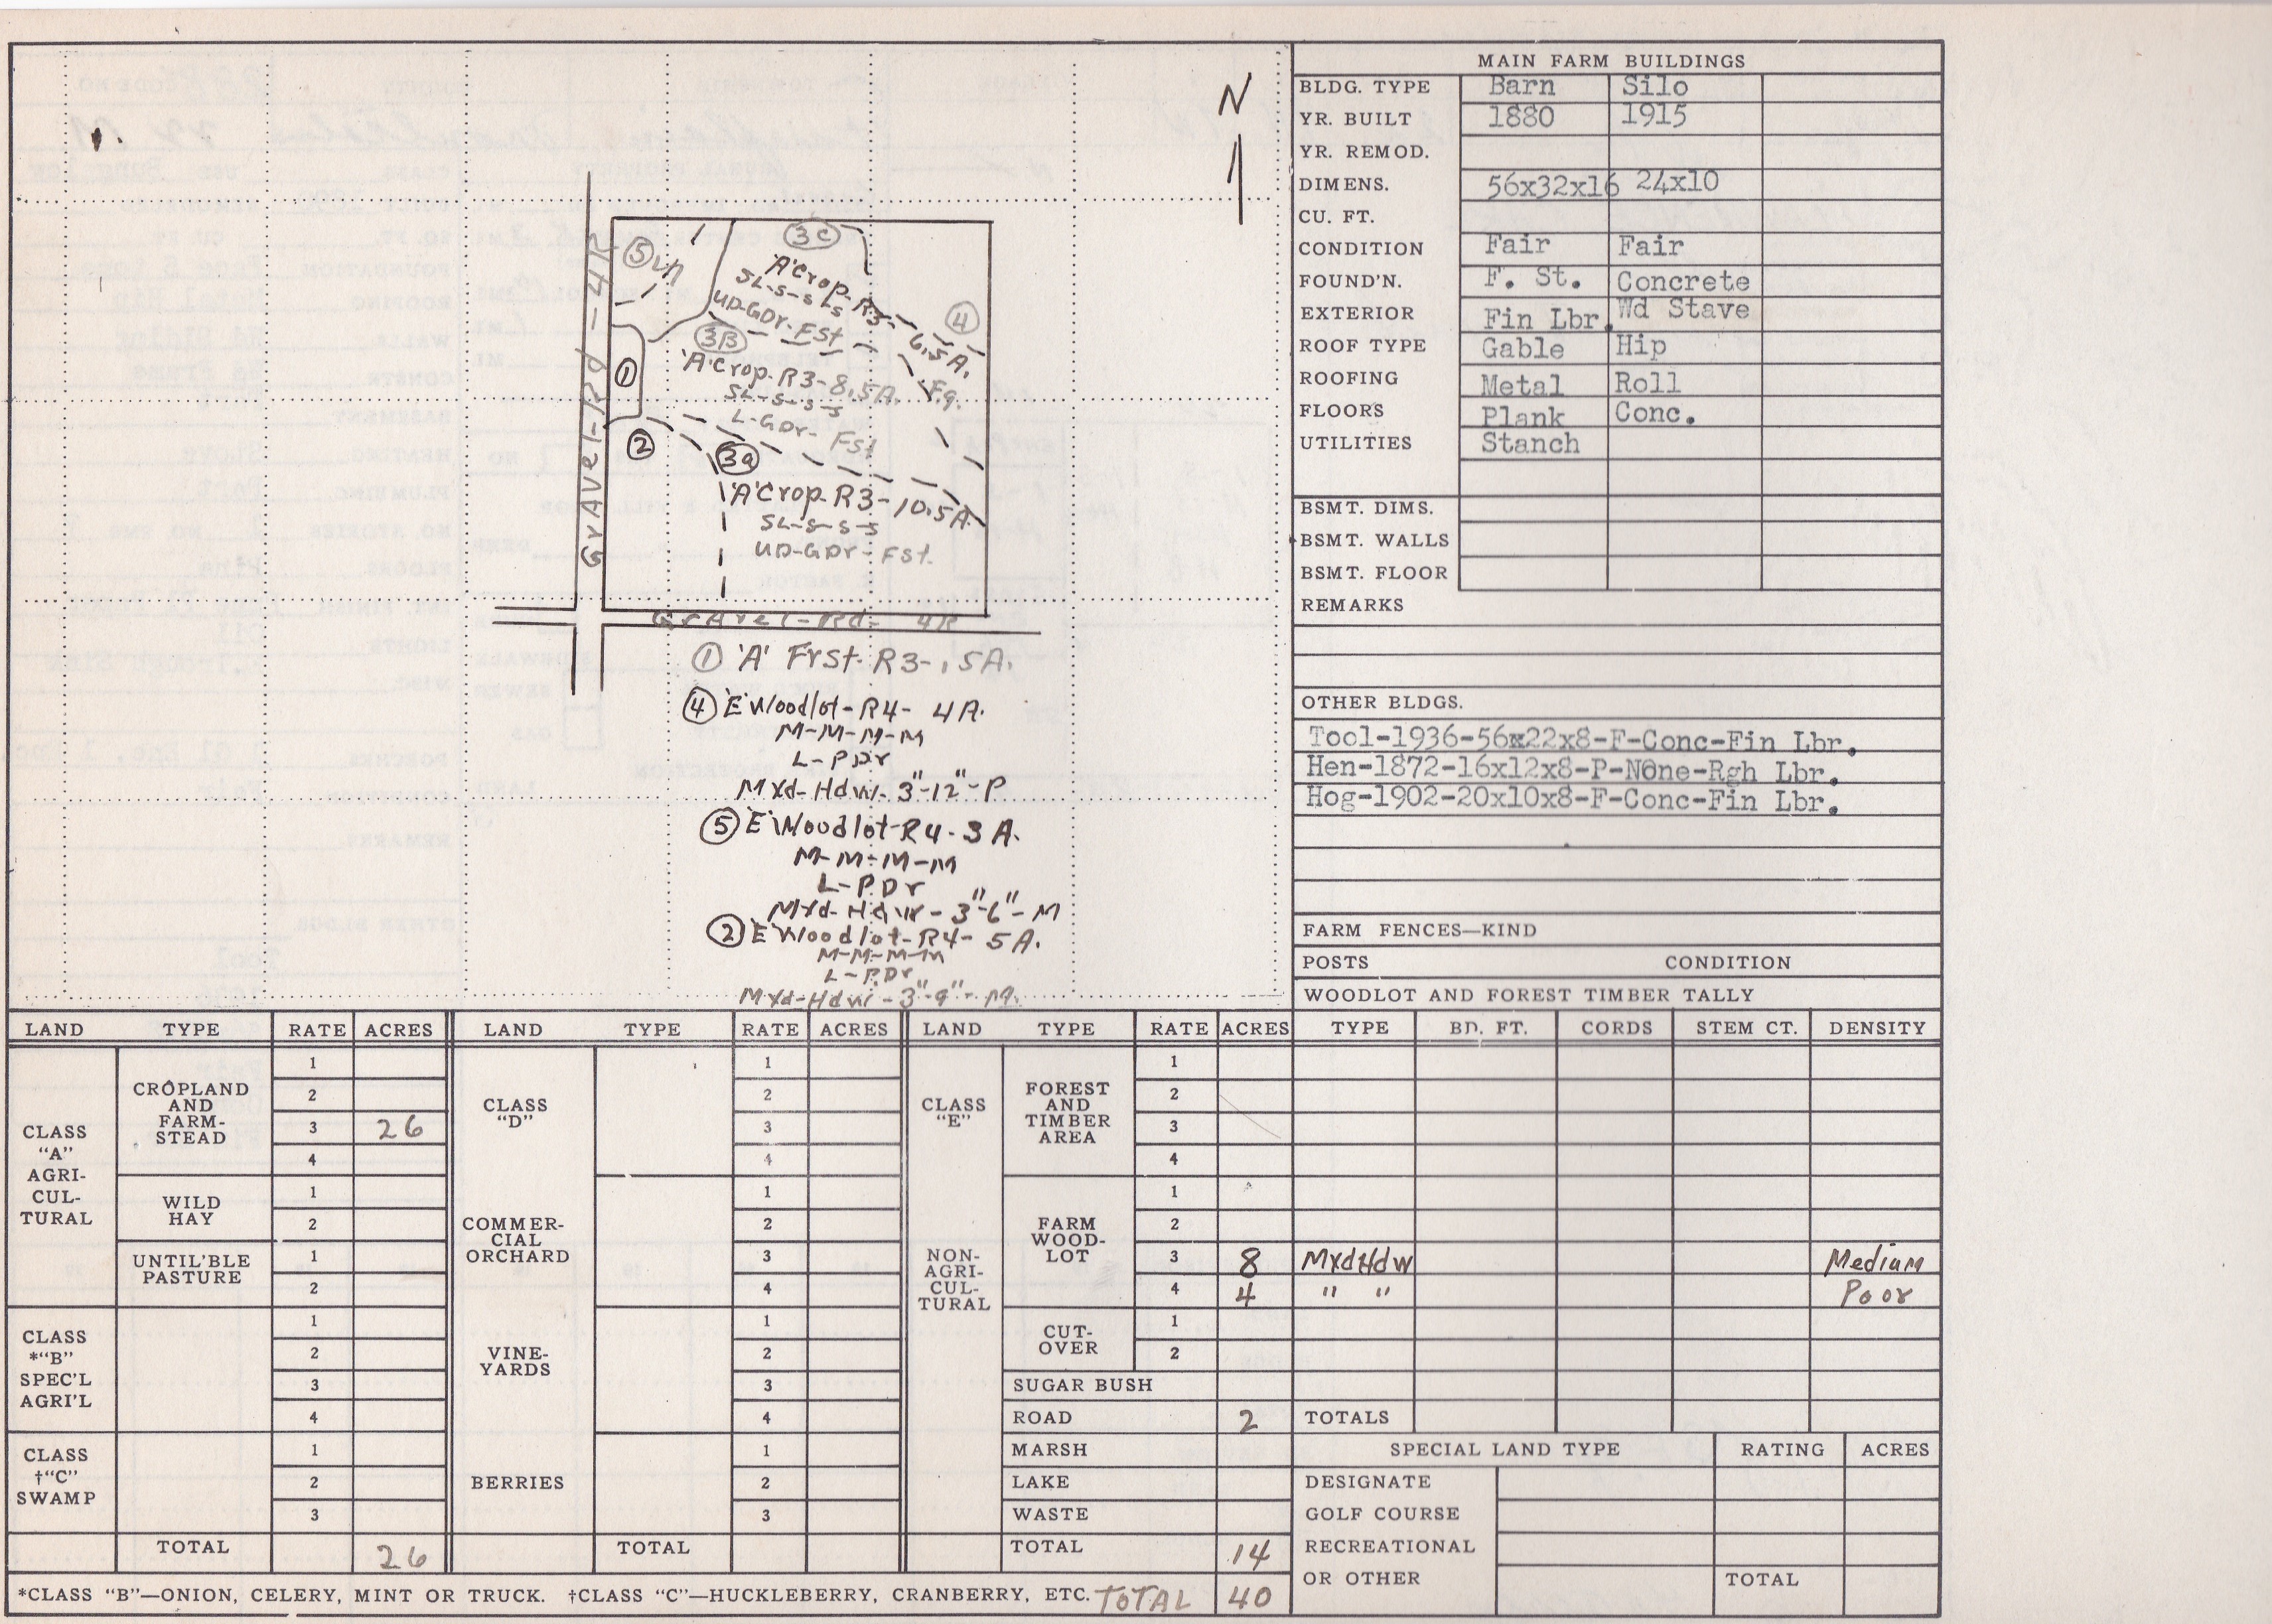 N
GrAvel-Rd-4R
⑤
③C
'A'Crop-R3-6.5A.
SL-S-S-S
UD-GDr-FSt
④
③B
'A'Crop-R3-8.5A.
SL-S-S-S
L-GDr-FSt
①
②
③a
'A'Crop-R3-10.5A.
SL-S-S-S
UD-GDr-FSt.
GrAvel-Rd-4R
① 'A' Frst-R3-.5A.
④ 'E'Woodlot-R4-4A.
M-M-M-M
L-PDr
Mxd-Hdw-3"-12"-P
⑤ 'E'Woodlot-R4-3A.
M-M-M-M
L-PDr
Mxd-Hdw-3"-6"-M
② 'E'Woodlot-R4-5A.
M-M-M-M
L-PDr
Mxd-Hdw-3"-9"-M.
MAIN FARM BUILDINGS
BLDG. TYPE Barn Silo
YR. BUILT 1880 1915
YR. REMOD.
DIMENS. 56x32x16 24x10
CU. FT.
CONDITION Fair Fair
FOUND'N. F. St. Concrete
EXTERIOR Fin Lbr. Wd Stave
ROOF TYPE Gable Hip
ROOFING Metal Roll
FLOORS Plank Conc.
UTILITIES Stanch
BSMT. DIMS.
BSMT. WALLS
BSMT. FLOOR
REMARKS
OTHER BLDGS.
Tool-1936-56x22x8-F-Conc-Fin Lbr.
Hen-1872-16x12x8-P-NOne-Rgh Lbr.
Hog-1902-20x10x8-F-Conc-Fin Lbr.
FARM FENCES—KIND
POSTS CONDITION
WOODLOT AND FOREST TIMBER TALLY
LAND TYPE RATE ACRES LAND TYPE RATE ACRES LAND TYPE RATE ACRES TYPE BD. FT. CORDS STEM CT. DENSITY
CLASS
"A"
AGRI-
CUL-
TURAL
CROPLAND
AND
FARM-
STEAD
1
2
3 26
4
WILD
HAY
1
2
UNTIL'BLE
PASTURE
1
2
CLASS
*"B"
SPEC'L
AGRI'L
1
2
3
4
CLASS
†"C"
SWAMP
1
2
3
TOTAL 26
CLASS
"D"
1
2
3
4
COMMER-
CIAL
ORCHARD
1
2
3
4
VINE-
YARDS
1
2
3
4
BERRIES
1
2
3
TOTAL
CLASS
"E"
NON-
AGRI-
CUL-
TURAL
FOREST
AND
TIMBER
AREA
1
2
3
4
FARM
WOOD-
LOT
1
2
3 8 MxdHdw Medium
4 4 " " Poor
CUT-
OVER
1
2
SUGAR BUSH
ROAD 2 TOTALS
MARSH
LAKE
WASTE
TOTAL 14
SPECIAL LAND TYPE RATING ACRES
DESIGNATE
GOLF COURSE
RECREATIONAL
OR OTHER TOTAL
*CLASS "B"—ONION, CELERY, MINT OR TRUCK. †CLASS "C"—HUCKLEBERRY, CRANBERRY, ETC. TOTAL 40